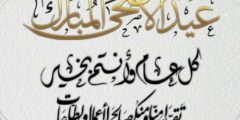 عيد الأضحى المبارك
كل عام وأنتم بخير
تقبل الله منا ومنكم صالح الأعمال والطاعات